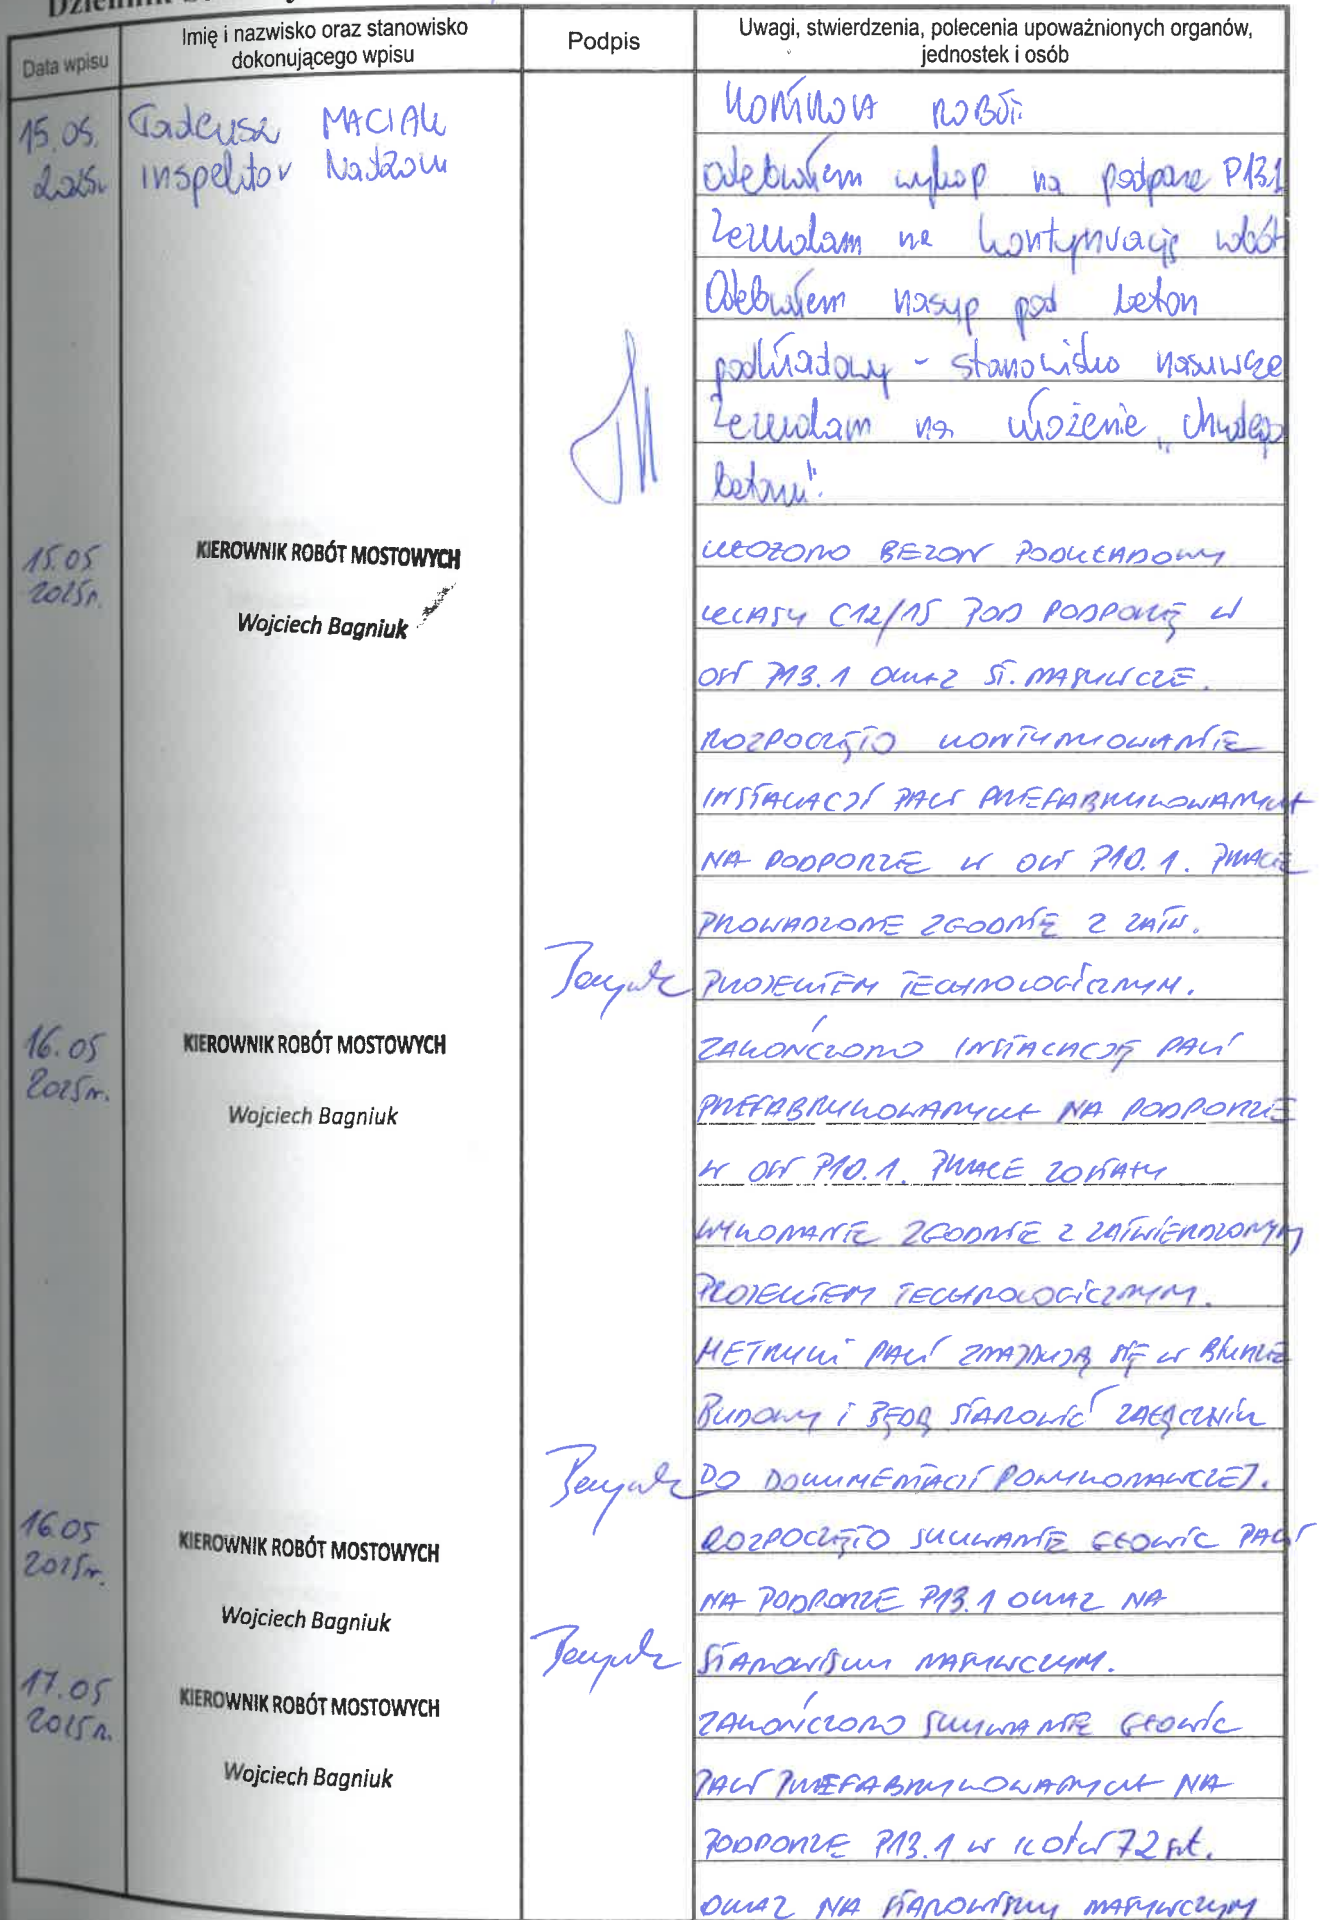 Data wpisu
Imię i nazwisko oraz stanowisko
dokonującego wpisu
Podpis
Uwagi, stwierdzenia, polecenia upoważnionych organów,
jednostek i osób
15.05.
2025r
Tadeusz MACIAK
inspektor Nadzoru
KONTROLA ROBÓT.
Odebrałem wykop na podporze P13.1
Zezwalam na kontynuację robót
Odebrałem nasyp pod beton
podkładowy - stanowisko nasuwcze
Zezwalam na ułożenie „chudego
betonu".
15.05
2025r.
KIEROWNIK ROBÓT MOSTOWYCH
Wojciech Bagniuk
UŁOŻONO BETON PODKŁADOWY
KLASY C12/15 POD PODPORĘ W
OSI P13.1 ORAZ ST. NASUWCZE.
ROZPOCZĘTO KONTYNUOWANIE
INSTALACJI PALI PREFABRYKOWANYCH
NA PODPORZE W OSI P10.1. PRACE
PROWADZONE ZGODNIE Z ZATW.
PROJEKTEM TECHNOLOGICZNYM.
16.05
2025r.
KIEROWNIK ROBÓT MOSTOWYCH
Wojciech Bagniuk
ZAKOŃCZONO INSTALACJĘ PALI
PREFABRYKOWANYCH NA PODPORZE
W OSI P10.1. PRACE ZOSTAŁY
WYKONANE ZGODNIE Z ZATWIERDZONYM
PROJEKTEM TECHNOLOGICZNYM.
METRYKI PALI ZNAJDUJĄ SIĘ W BIURZE
BUDOWY I BĘDĄ STANOWIĆ ZAŁĄCZNIK
DO DOKUMENTACJI POWYKONAWCZEJ.
16.05
2025r.
KIEROWNIK ROBÓT MOSTOWYCH
Wojciech Bagniuk
ROZPOCZĘTO SKUWANIE GŁOWIC PALI
NA PODPORZE P13.1 ORAZ NA
STANOWISKU NASUWCZYM.
17.05
2025r.
KIEROWNIK ROBÓT MOSTOWYCH
Wojciech Bagniuk
ZAKOŃCZONO SKUWANIE GŁOWIC
PALI PREFABRYKOWANYCH NA
PODPORZE P13.1 W ILOŚCI 72 szt.
ORAZ NA STANOWISKU NASUWCZYM